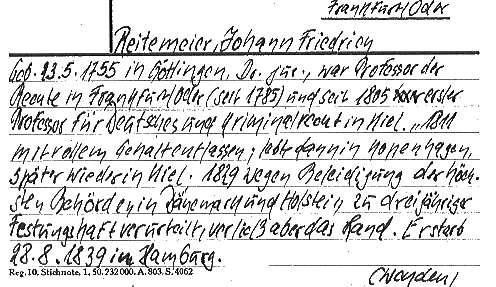 Frankfurt/Oder
Reitemeier, Johann Friedrich
Geb. 13.5.1755 in Göttingen, Dr. jur., war Professor der
Rechte in Frankfurt/Oder (seit 1785) und seit 1805 erster
Professor für Deutsches und Kriminalrecht in Kiel. 1811
mit vollem Gehalt entlassen; lebt dann in Kopenhagen,
später wieder in Kiel. 1829 wegen Beleidigung der höch-
sten Behörden in Dänemark und Holstein zu dreijähriger
Festungshaft verurteilt, verließ aber das Land. Er starb
28.8.1839 in Hamburg.
Reg. 10. Stichnote. 1, 50. 232000. A. 803. S. 4062